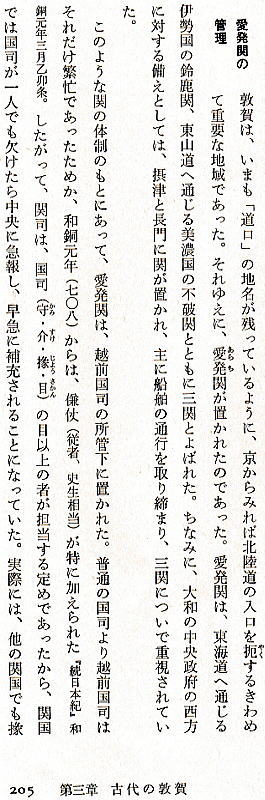 愛発関の
管理
敦賀は、いまも「道口」の地名が残っているように、京からみれば北陸道の入口を扼するきわめ
て重要な地域であった。それゆえに、愛発関が置かれたのであった。愛発関は、東海道へ通じる
伊勢国の鈴鹿関、東山道へ通じる美濃国の不破関とともに三関とよばれた。ちなみに、大和の中央政府の西方
に対する備えとしては、摂津と長門に関が置かれ、主に船舶の通行を取り締まり、三関についで重視されてい
た。
このような関の体制のもとにあって、愛発関は、越前国司の所管下に置かれた。普通の国司より越前国司は
それだけ繁忙であったためか、和銅元年（七〇八）からは、傔仗（従者、史生相当）が特に加えられた『続日本紀』和
銅元年三月乙卯条。したがって、関司は、国司（守・介・掾・目）の目以上の者が担当する定めであったから、関国
では国司が一人でも欠けたら中央に急報し、早急に補充されることになっていた。実際には、他の関国でも掾
205 第三章 古代の敦賀